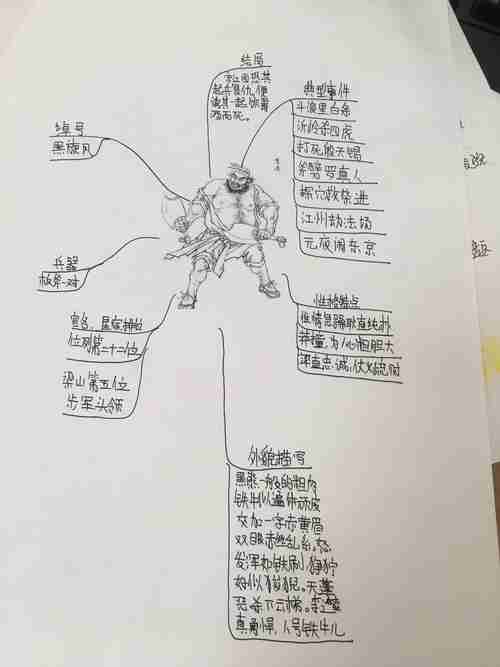 结局
宋江因恐其
起兵复仇,便
让其一起饮毒
酒而死。
典型事件
斗浪里白条
沂岭杀四虎
打死殷天锡
斧劈罗真人
探穴救柴进
江州劫法场
元夜闹东京
绰号
黑旋风
兵器
板斧一对
官名、星宿、神位
位列第二十二位
梁山第五位
步军头领
性格特点
性情急躁耿直纯朴
莽撞,为人心粗胆大
率直忠诚,仗义疏财
外貌描写
黑熊一般的粗肉
铁牛似遍体顽皮
交加一字赤黄眉
双眼赤丝乱系,怒
发浑如铁刷,狰狞
好似狻猊。天蓬
恶杀下云梯。李逵
真勇悍,人号铁牛儿